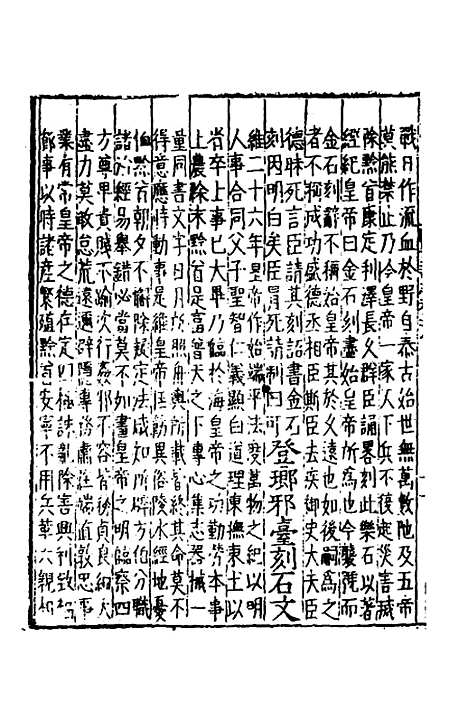 戰日作流血於野自泰古始世無萬數阤及五帝
莫能禁止乃今皇帝一家天下兵不復起災害滅
除黔首康定利澤長久群臣誦畧刻此樂石以著
經紀皇帝曰金石刻盡始皇帝所爲也今襲號而
金石刻辭不稱始皇帝其於久遠也如後嗣爲之
者不稱成功盛德丞相臣斯臣去疾御史大夫臣
德昧死言臣請具刻詔書金石
刻因明白矣臣昧死請制曰可登瑯邪臺刻石文
維二十六年皇帝作始端平法度萬物之紀以明
人事合同父子聖智仁義顯白道理東撫東土以
省卒士事已大畢乃臨於海皇帝之功勤勞本事
上農除末黔首是富普天之下摶心集志器械一
量同書文字日月所照舟輿所載皆終其命莫不
得意應時動事是維皇帝匡飭異俗陵水經地憂
恤黔首朝夕不懈除疑定法咸知所辟方伯分職
諸治經易舉錯必當莫不如畫皇帝之明臨察四
方尊卑貴賤不踰次行姦邪不容皆務貞良細大
盡力莫敢怠荒遠邇辟隱專務肅莊端直敦忠事
業有常皇帝之德存定四極誅亂除害興利致福
節事以時諸產繁殖黔首安寧不用兵革六親相